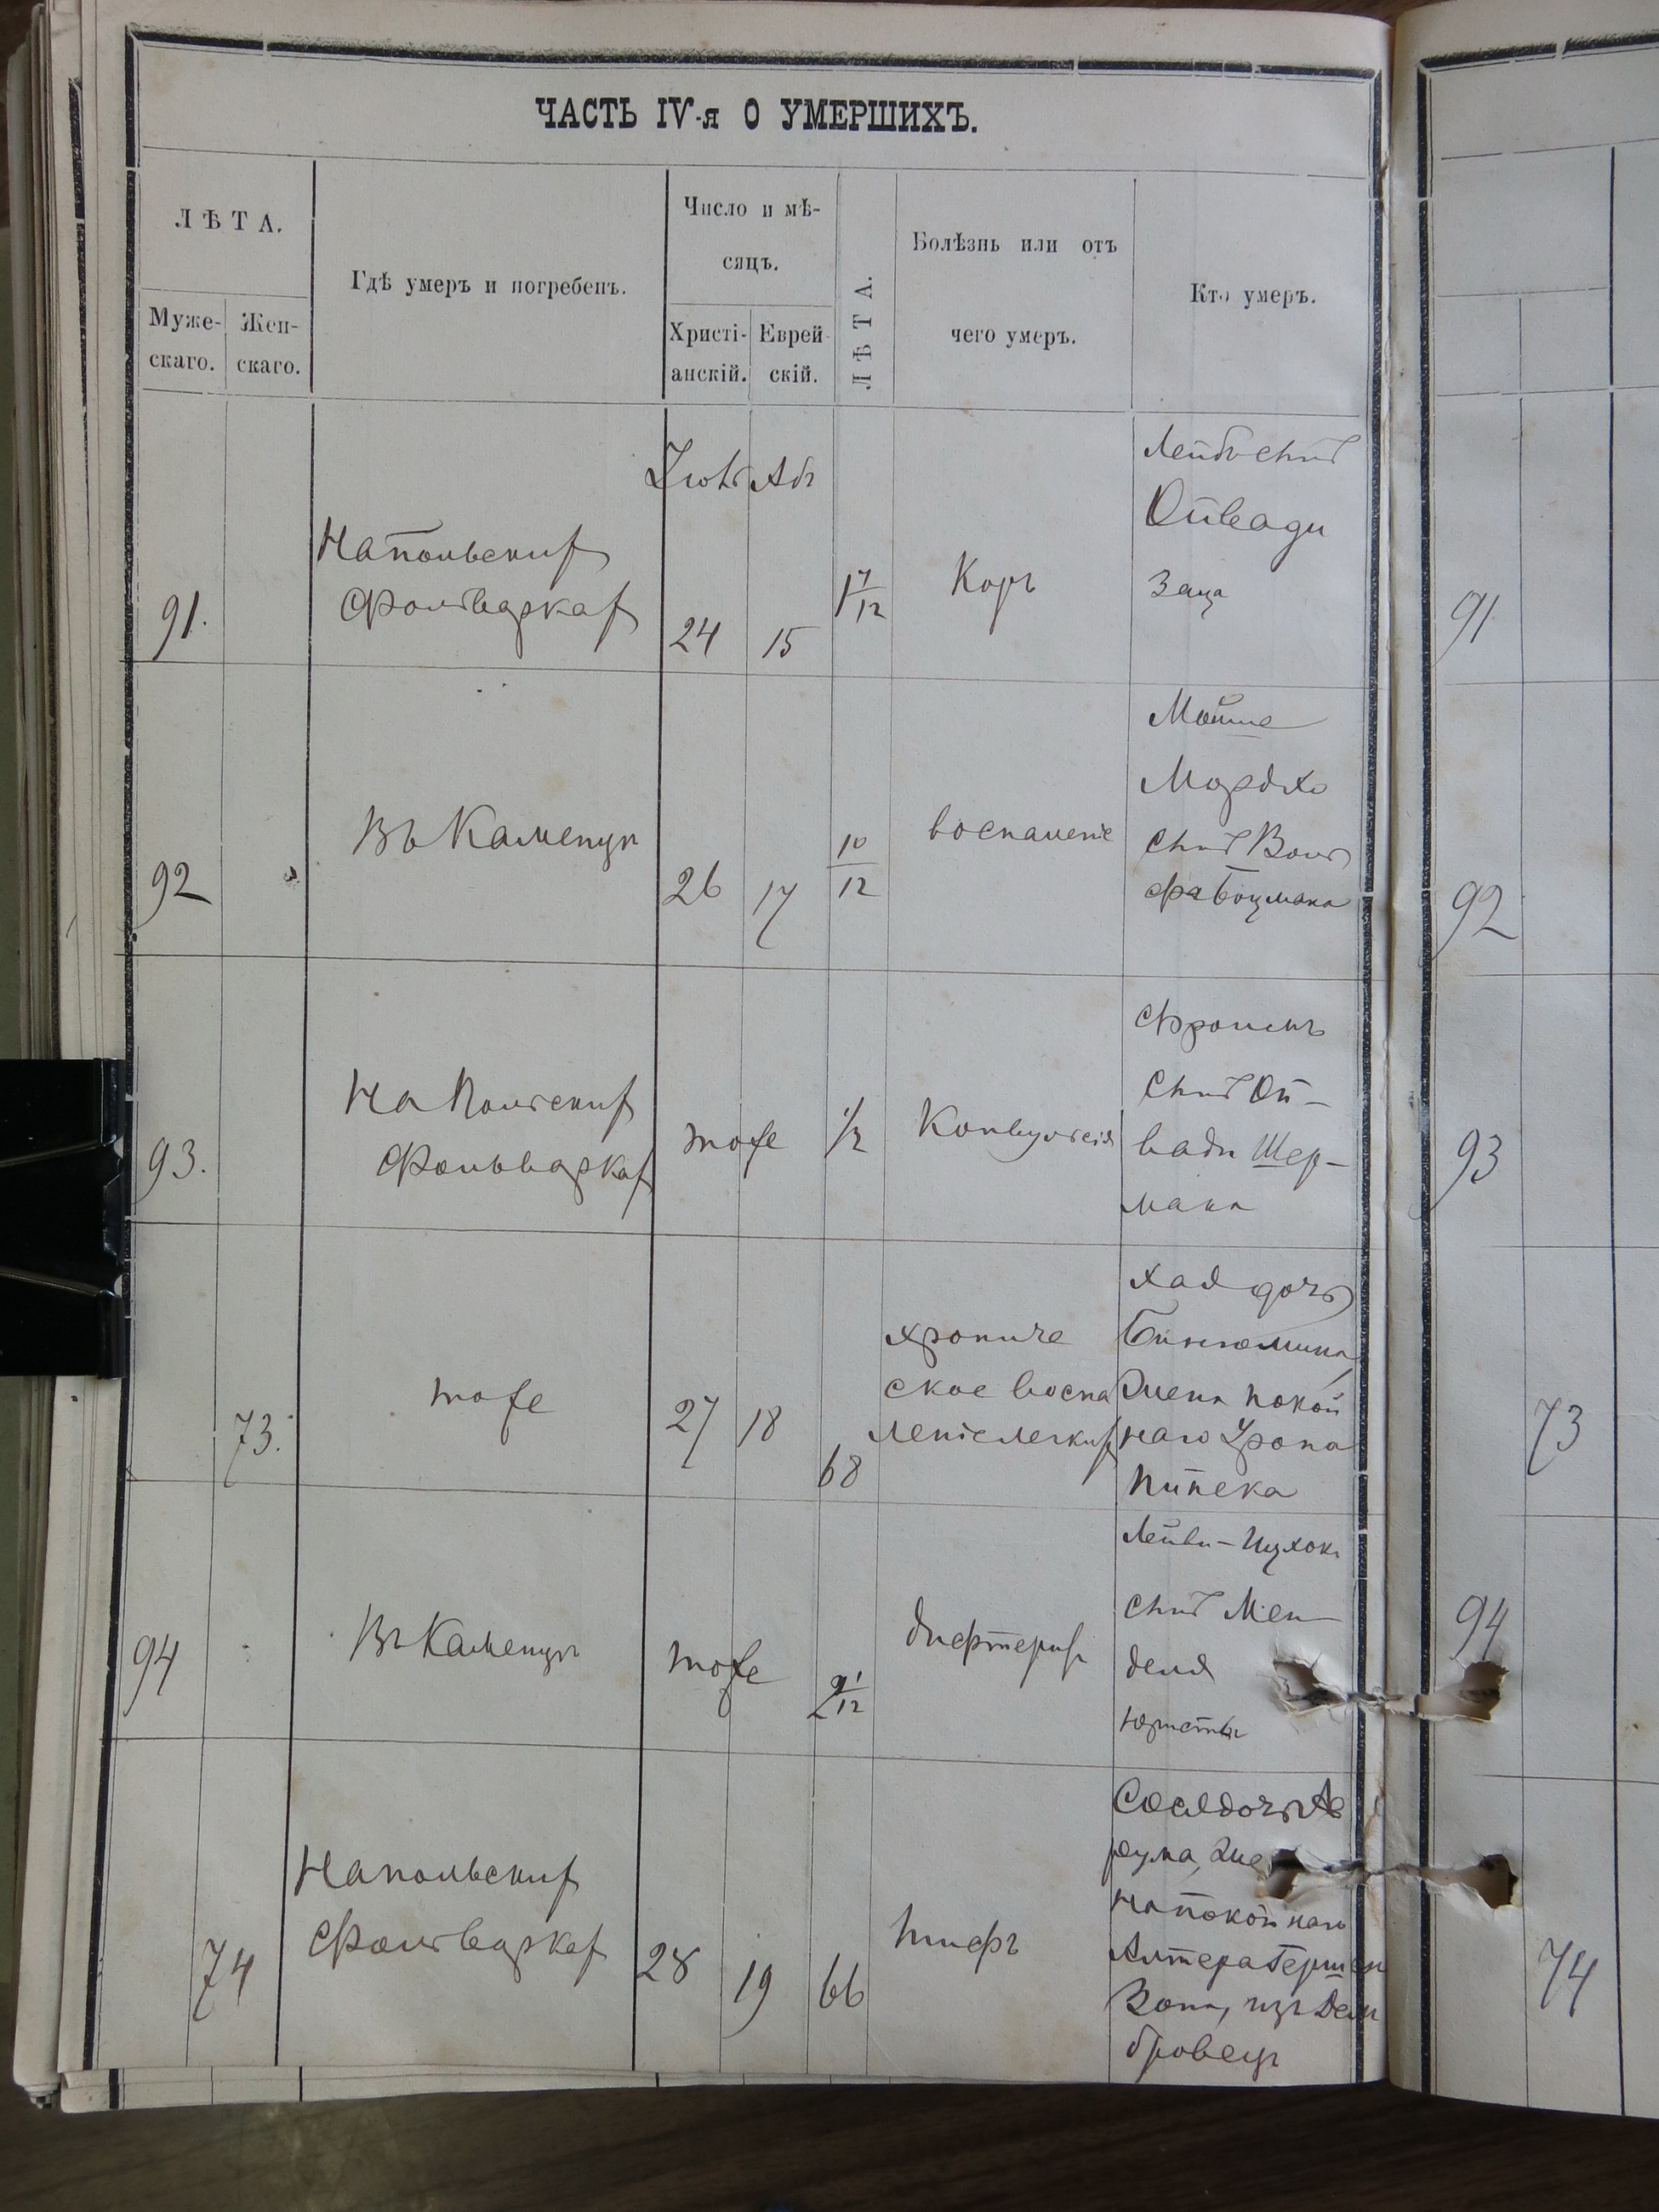 ЧАСТЬ IV-я О УМЕРШИХЪ.
ЛѢТА.
Муже-
скаго.
Жен-
скаго.
Гдѣ умеръ и погребенъ.
Число и мѣ-
сяцъ.
Христі-
анскій.
Еврей
скій.
ЛѢТА.
Болѣзнь или отъ
чего умеръ.
Кто умеръ.
Авъ
91.
На польских
Фольварках
24
15
1 7/12
Корь
Лейбъ сынъ
Ойвади
Заца
91
92
Въ Каменцѣ
26
17
10/12
воспаленіе
Мойше
Мордхо
сынъ Воль
фа Боцмана
92
93.
На Польских
Фольварках
тоже
1/2
Конвульсія
Фроимъ
сынъ Ой-
вади Шер-
мана
93
73.
тоже
27
18
68
хрониче
ское воспа
леніе легких
Хая дочь
Биньомина,
жена покой
наго Урона
Пипека
73
94
Въ Каменцѣ
тоже
2 1/12
дифтерих
Лейви-Ицхокъ
сынъ Мен-
деля
94
74
На польских
Фольварках
28
19
66
тифъ
дочь Ав
рума, же
на покойнаго
Алтера Гершен
Зона, изъ Дом
бровецъ
74